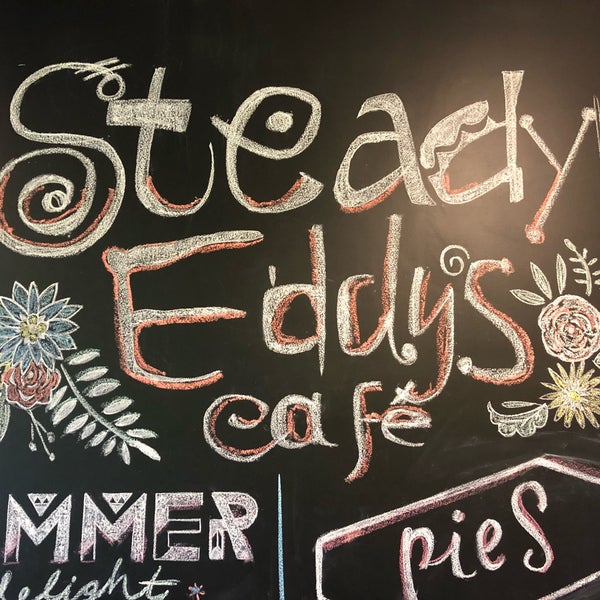 Steady
Eddy's
café
MMER
delight
pies